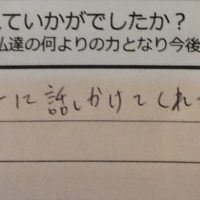 ていかがでしたか？
私達の何よりの力となり今後
に話しかけてくれ